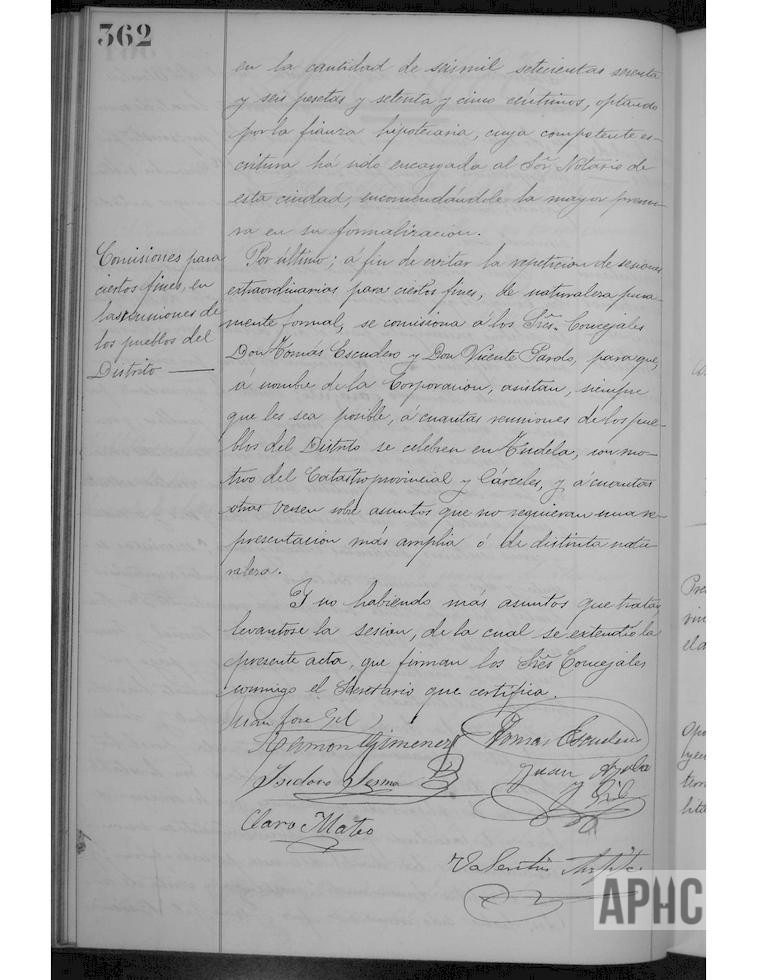 362
en la cantidad de seis mil setecientas sesenta
y seis pesetas y setenta y cinco céntimos, optando
por la fianza hipotecaria, cuya competente es-
critura há sido encargada al Sõr Notario de
esta ciudad, encomendándole la mayor premu-
ra en su formalizacion.
Comisiones para
ciertos fines, en
las reuniones de
los pueblos del
Distrito —
Por último; á fin de evitar la repeticion de sesiones
extraordinarias para ciertos fines, de naturaleza pura-
mente formal, se comisiona á los Sres. Concejales
Don Tomás Escudero y Don Vicente Pardo, para que,
á nombre de la Corporacion, asistan, siempre
que les sea posible, á cuantas reuniones de los pue-
blos del Distrito se celebren en Tudela, con mo-
tivo del Catastro provincial y Cárceles, y á cuantas
otras versen sobre asuntos que no requieran una re-
presentacion más amplia ó de distinta natu-
raleza.
Y no habiendo más asuntos que tratar
levantose la sesion, de la cual se extendió la
presente acta, que firman los Sres Concejales
conmigo el Secretario que certifica.
Juan José Gil
Ramon Gimenez
Tomas Escudero
Isidoro Sesma
Juan Ayala
y Gil
Claro Mateo
Valentin
APHC